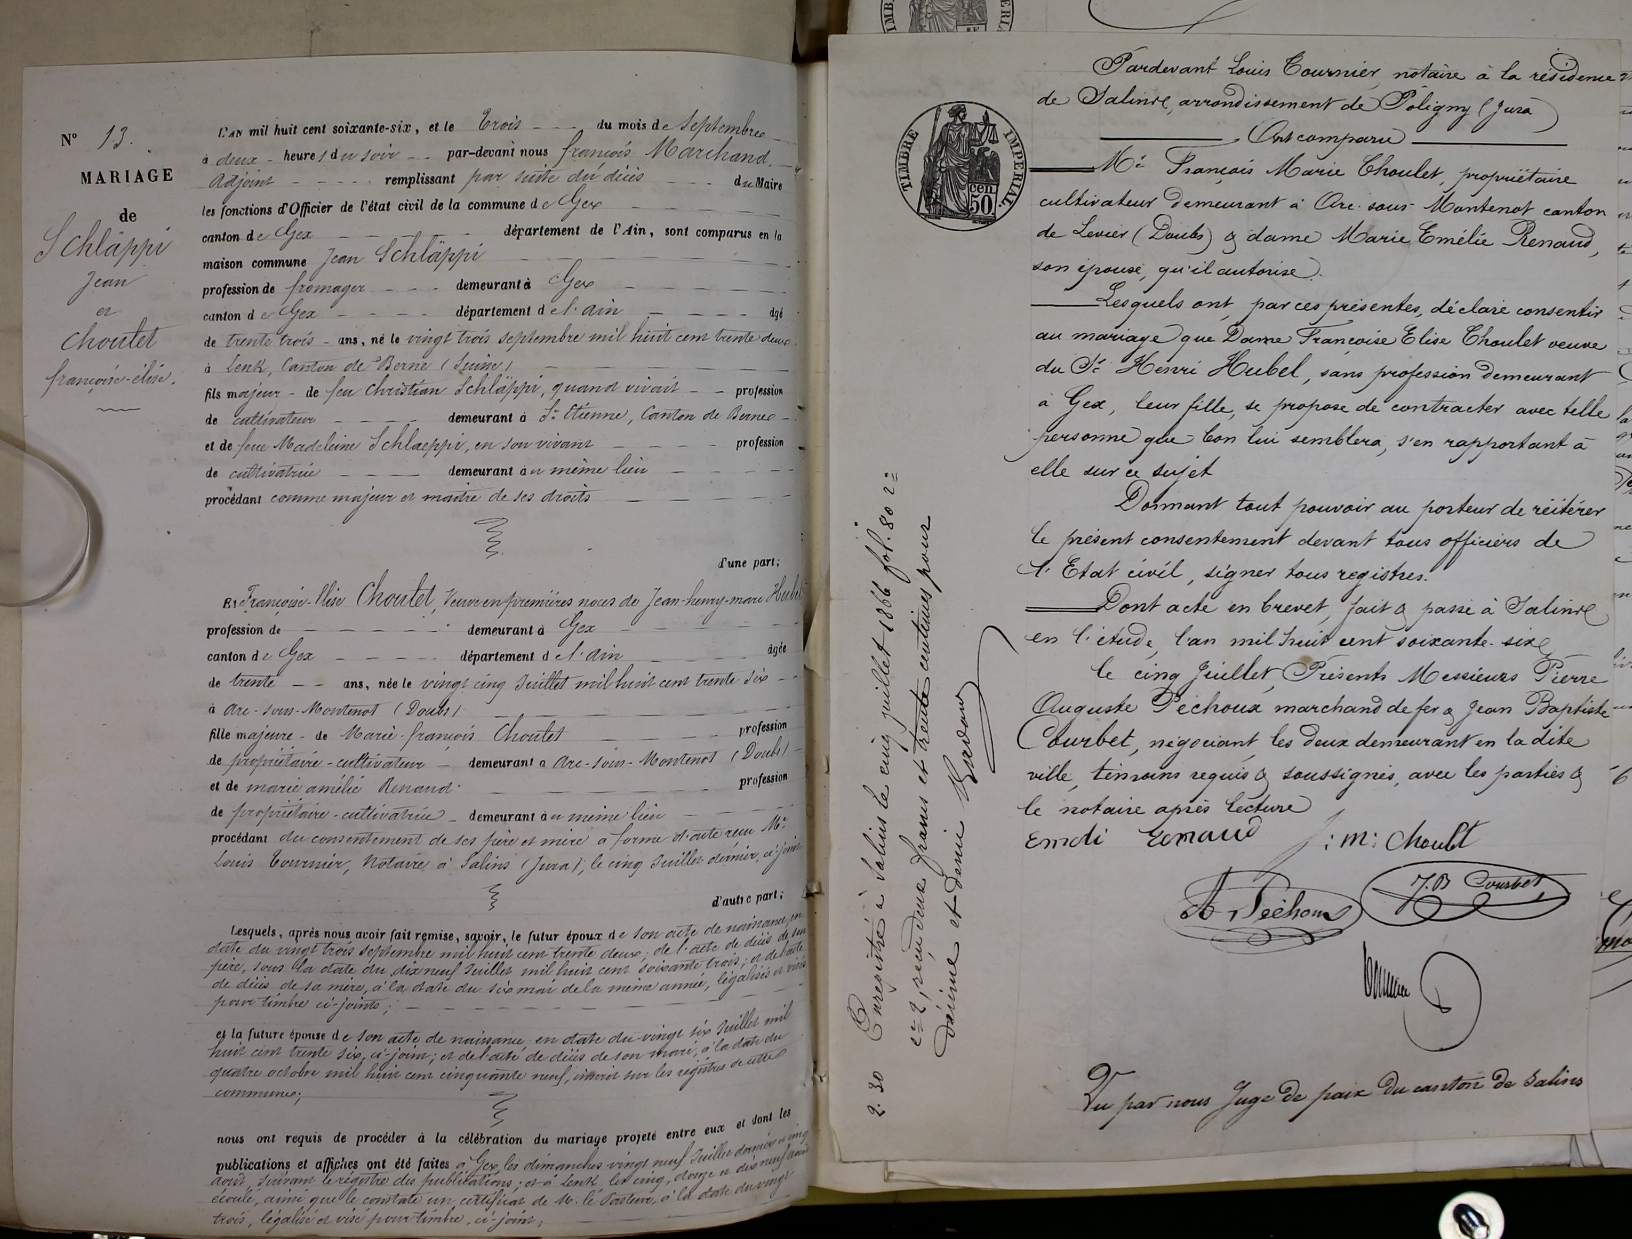 N° 13.
MARIAGE
de
Schläppi
Jean
et
Choulet
françoise-élise.
L'AN mil huit cent soixante-six, et le trois du mois de Septembre
à deux heures du soir par-devant nous françois Marchand,
Adjoint remplissant par suite du décès du Maire
les fonctions d'Officier de l'état civil de la commune de Gex
canton de Gex département de l'Ain, sont comparus en la
maison commune Jean Schläppi
profession de fromager demeurant à Gex
canton de Gex département de l'ain âgé
de trente trois ans, né le vingt trois septembre mil huit cent trente deux
à Lenk, Canton de Berne (Suisse)
fils majeur de feu Christian Schläppi, quand vivait profession
de cultivateur demeurant à St Etienne, Canton de Berne
et de feue Madeleine Schlaeppi, en son vivant profession
de cultivatrice demeurant au même lieu
procédant comme majeur et maître de ses droits
d'une part;
Et Françoise-Elise Choulet, Veuve en premières noces de Jean-henry-marc Hubel
profession de demeurant à Gex
canton de Gex département de l'ain âgée
de trente ans, née le vingt cinq Juillet mil huit cent trente six
à Arc-sous-Montenot (Doubs)
fille majeure de Marie-françois Choulet profession
de propriétaire-cultivateur demeurant à Arc-sous-Montenot (Doubs)
et de marie amélie Renaud profession
de propriétaire-cultivatrice demeurant au même lieu
procédant du consentement de ses père et mère à forme d'acte reçu Me
Louis Tournier, Notaire à Salins (Jura), le cinq Juillet dernier, ci-joint
d'autre part;
Lesquels, après nous avoir fait remise, savoir, le futur époux de son acte de naissance, en
date du vingt trois septembre mil huit cent trente deux; de l'acte de décès de son
père, sous la date du dix neuf Juillet mil huit cent soixante trois; et de l'acte
de décès de sa mère, à la date du six mai de la même année, légalisés et visés
pour timbre ci-joints;
et la future épouse de son acte de naissance en date du vingt six Juillet mil
huit cent trente six, ci-joint; et de l'acte de décès de son mari, à la date du
quatre octobre mil huit cent cinquante neuf, inscrit sur les registres de cette
commune;
nous ont requis de procéder à la célébration du mariage projeté entre eux et dont les
publications et affiches ont été faites à Gex, les dimanches vingt neuf Juillet dernier et cinq
août, suivant le registre des publications; et à Lenk les cinq, douze et dix neuf août
écoulé, ainsi que le constate un certificat de M. le Pasteur, à la date du vingt
trois, légalisé et visé pour timbre, ci-joint;
TIMBRE IMPERIAL
50 cen
Pardevant Louis Tournier, notaire à la résidence
de Salins, arrondissement de Poligny (Jura)
Ont comparu
Mr François Marie Choulet, propriétaire
cultivateur demeurant à Arc-sous-Montenot canton
de Levier (Doubs) & dame Marie Emélie Renaud,
son épouse, qu'il autorise.
Lesquels ont, par ces présentes, déclaré consentir
au mariage que Dame Françoise Elise Choulet veuve
du Sr Henri Hubel, sans profession demeurant
à Gex, leur fille, se propose de contracter avec telle
personne que bon lui semblera, s'en rapportant à
elle sur ce sujet
Donnant tout pouvoir au porteur de réitérer
le présent consentement devant tous officiers de
l'Etat civil, signer tous registres.
Dont acte en brevet, fait & passé à Salins
en l'étude, l'an mil huit cent soixante-six
le cinq Juillet, Présents Messieurs Pierre
Auguste Péchoux marchand de fer & Jean Baptiste
Courbet, négociant les deux demeurant en la dite
ville, témoins requis & soussignés, avec les parties &
le notaire après lecture
Emeli Renaud f: m: Choulet
A Péchoux J.B Courbet
Vu par nous Juge de paix du canton de Salins
2.30 Enregistré à Salins le cinq juillet 1866 fol. 80 r°
c° 2, reçu deux francs et trente centimes pour
décime et demie